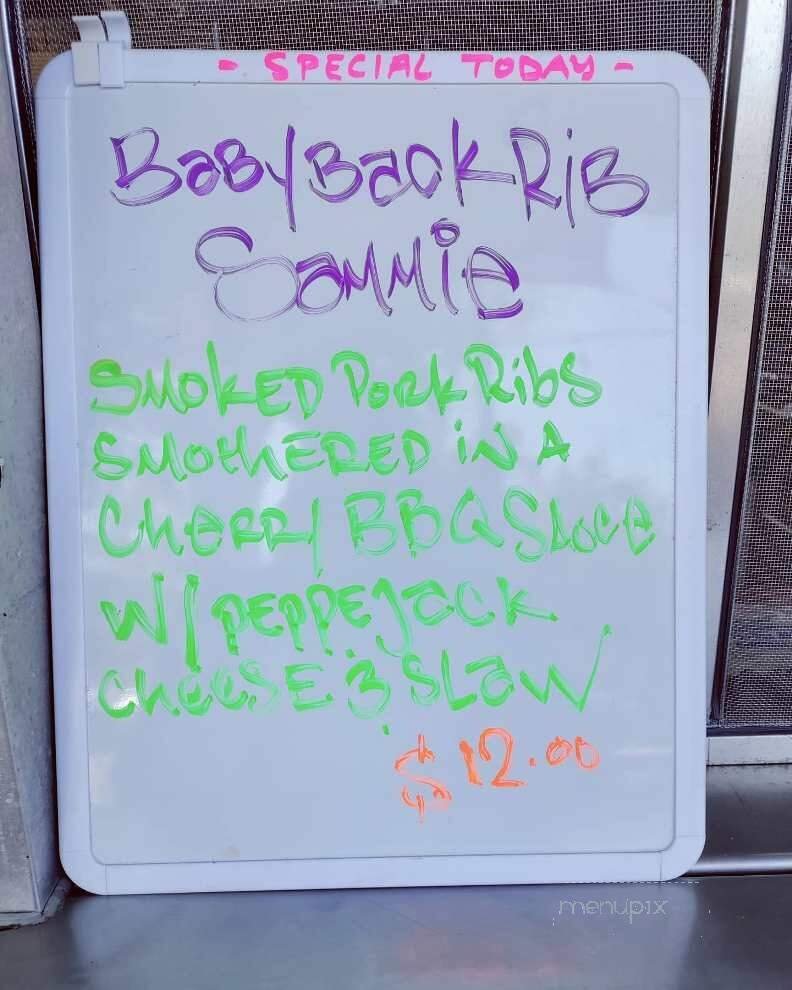 - SPECIAL TODAY -
BaBy Back RiB
Sammie
SMOKED PORK Ribs
SMOthERED iN A
ChERRy BBQ SAUCE
W/ PEPPEJaCK
ChEESE & SLaW
$12.00
menupix